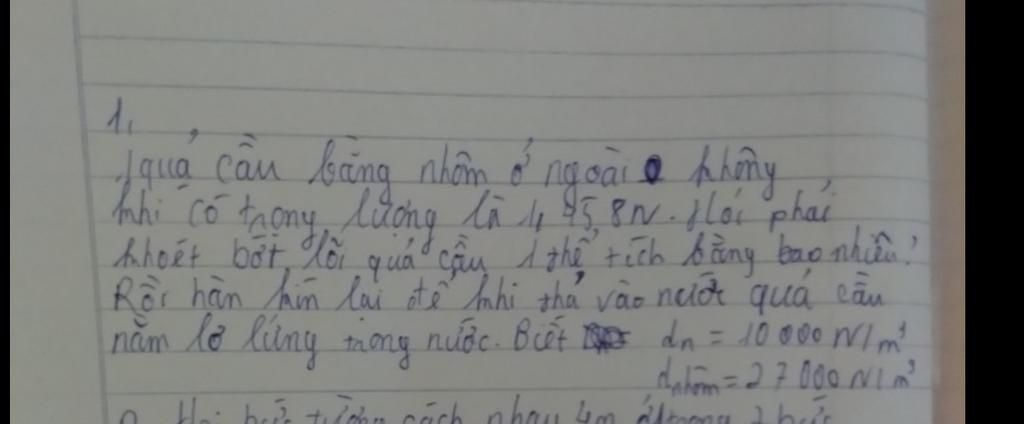 1,
1 quả cầu bằng nhôm ở ngoài không
khi có trọng lượng là 1,458N. Hỏi phải
khoét bớt lõi quả cầu 1 thể tích bằng bao nhiêu?
Rồi hàn kín lại để khi thả vào nước quả cầu
nằm lơ lửng trong nước. Biết dn = 10 000 N/m³
dnhôm = 27 000 N/m³
cách nhau 4m